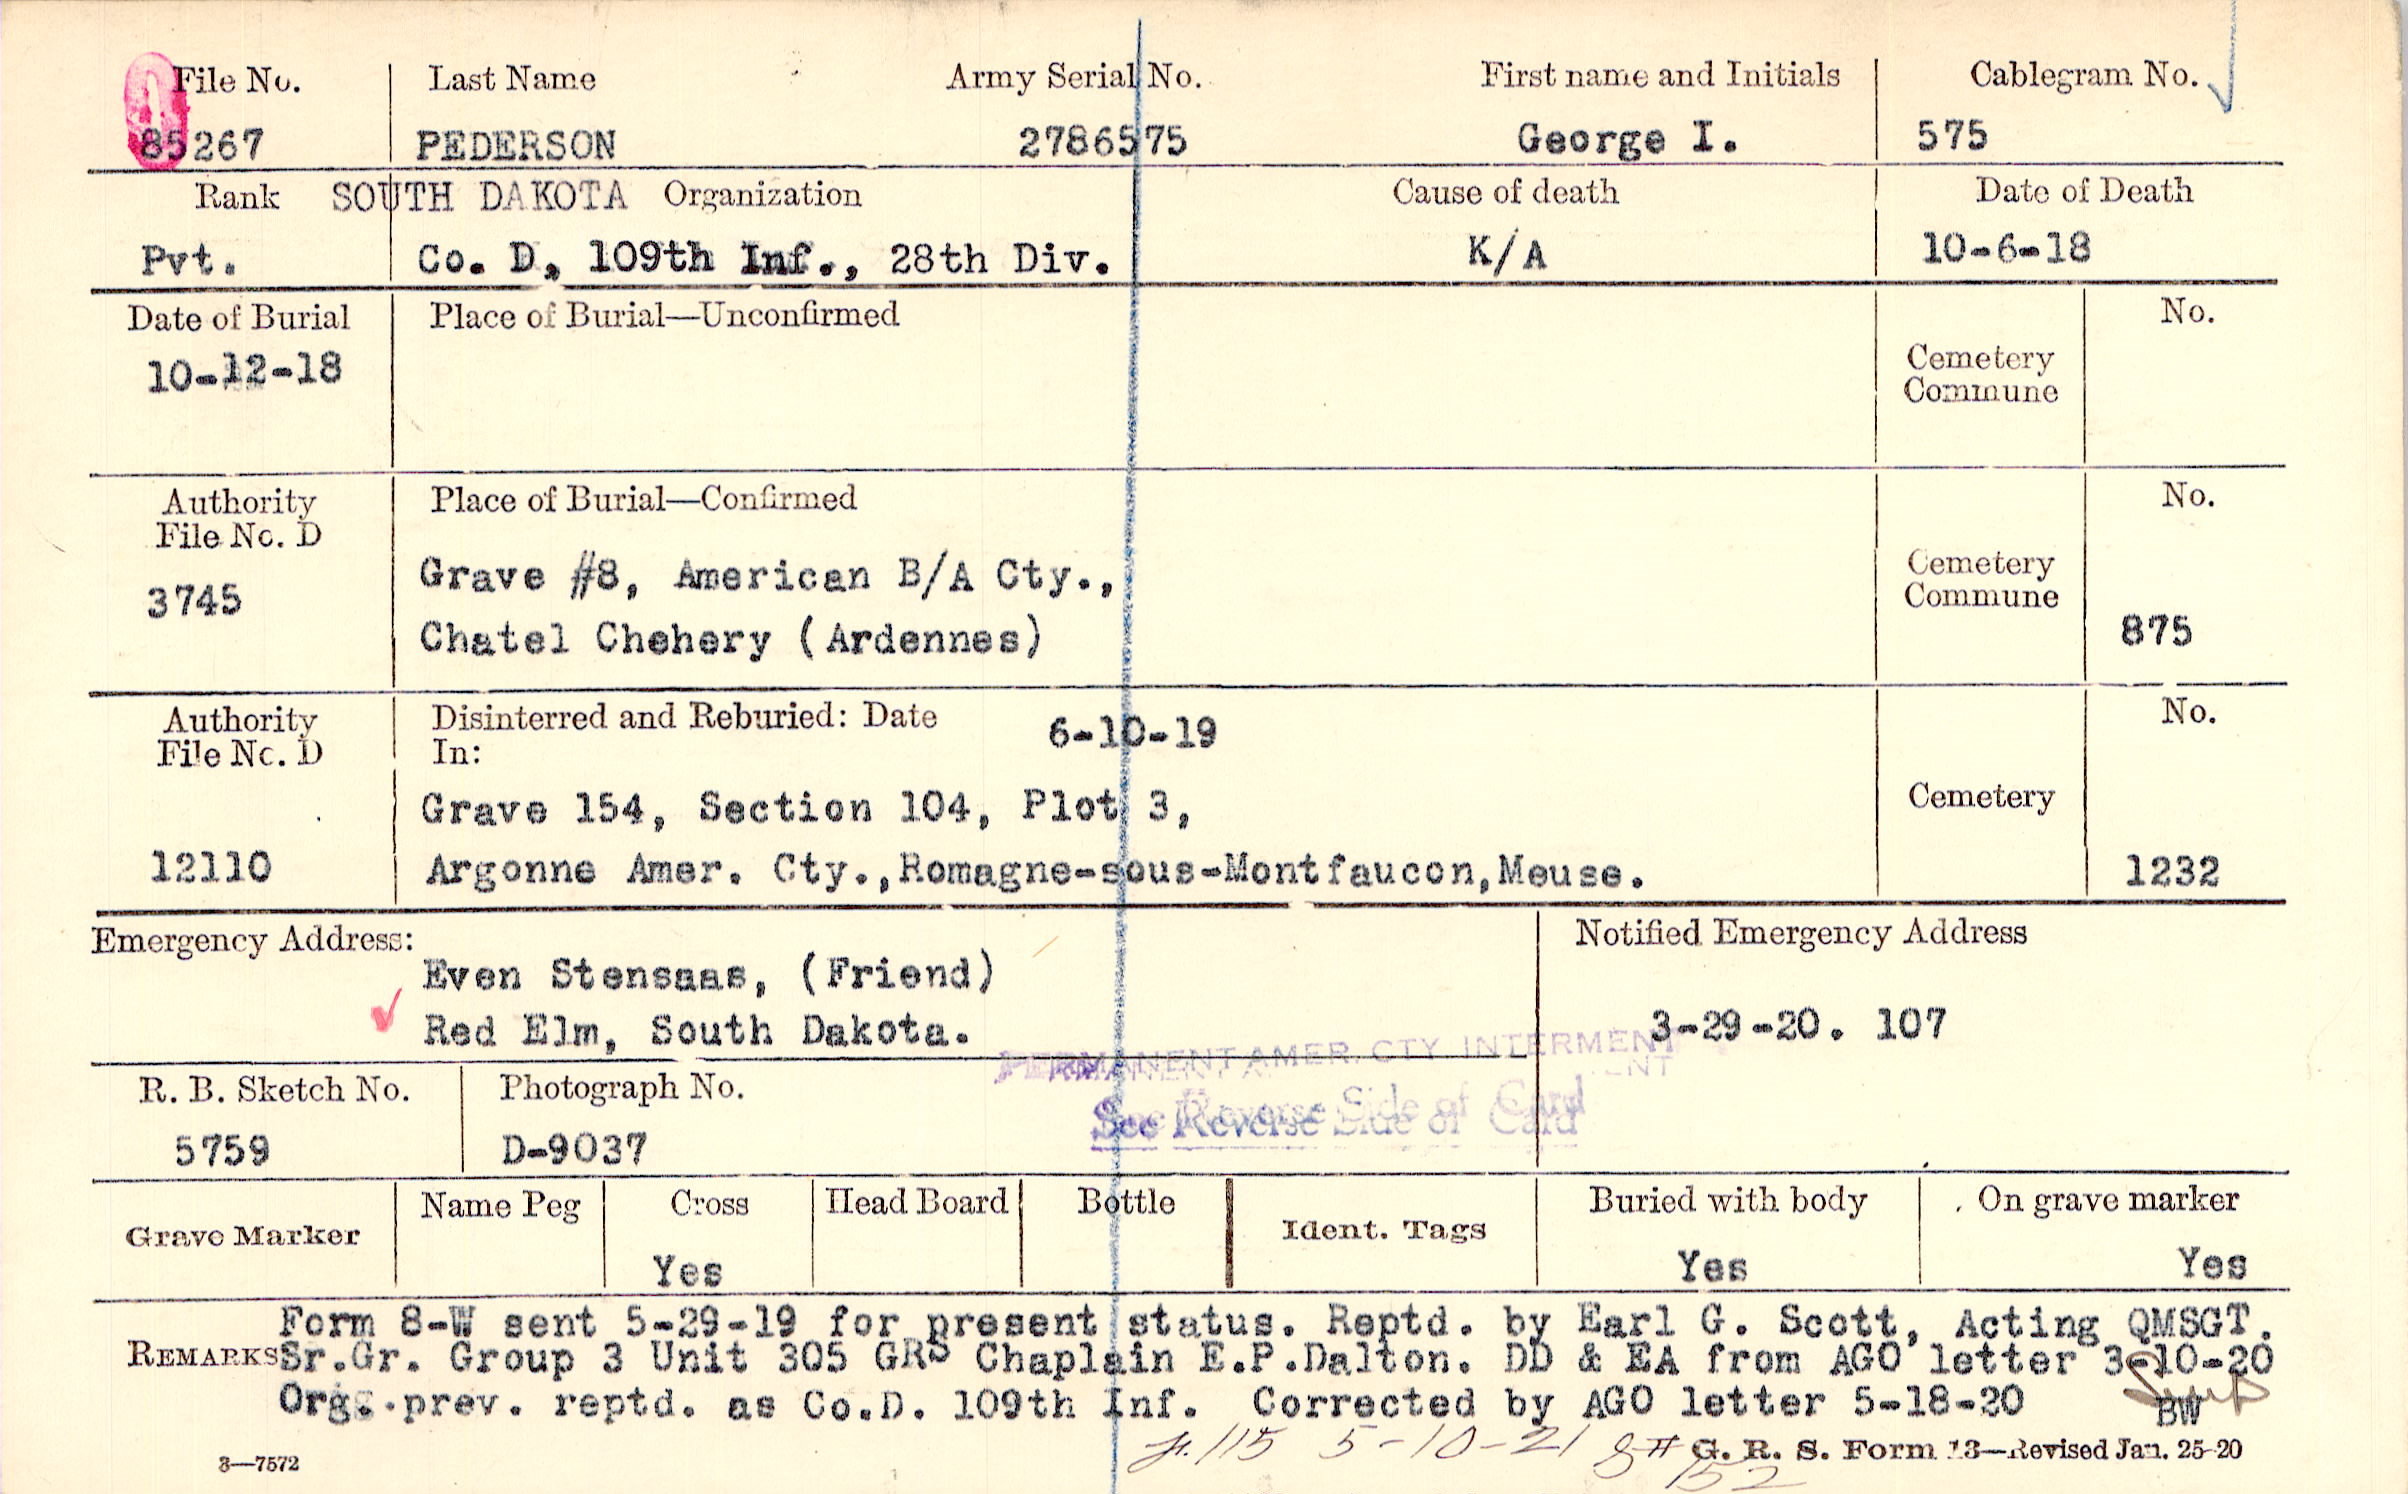 File No. Last Name Army Serial No. First name and Initials Cablegram No.
85267 PEDERSON 2786575 George I. 575
Rank SOUTH DAKOTA Organization Cause of death Date of Death
Pvt. Co. D, 109th Inf., 28th Div. K/A 10-6-18
Date of Burial Place of Burial—Unconfirmed No.
10-12-18
Cemetery
Commune
Authority Place of Burial—Confirmed No.
File No. D
3745 Grave #8, American B/A Cty., Cemetery
Commune
Chatel Chehery (Ardennes) 875
Authority Disinterred and Reburied: Date 6-10-19 No.
File No. D In:
Grave 154, Section 104, Plot 3, Cemetery
12110 Argonne Amer. Cty.,Romagne-sous-Montfaucon,Meuse. 1232
Emergency Address: Notified Emergency Address
Even Stensaas, (Friend)
Red Elm, South Dakota. 3-29-20. 107
PERMANENT AMER. CTY INTERMENT
R. B. Sketch No. Photograph No.
See Reverse Side of Card
5759 D-9037
Grave Marker Name Peg Cross Head Board Bottle Ident. Tags Buried with body On grave marker
Yes Yes Yes
Form 8-W sent 5-29-19 for present status. Reptd. by Earl G. Scott, Acting QMSGT.
REMARKS Sr.Gr. Group 3 Unit 305 GRS Chaplain E.P.Dalton. DD & EA from AGO letter 3-10-20
Org. prev. reptd. as Co.D. 109th Inf. Corrected by AGO letter 5-18-20 BW
115 5-10-21
3—7572 G. R. S. Form 13—Revised Jan. 25-20
152